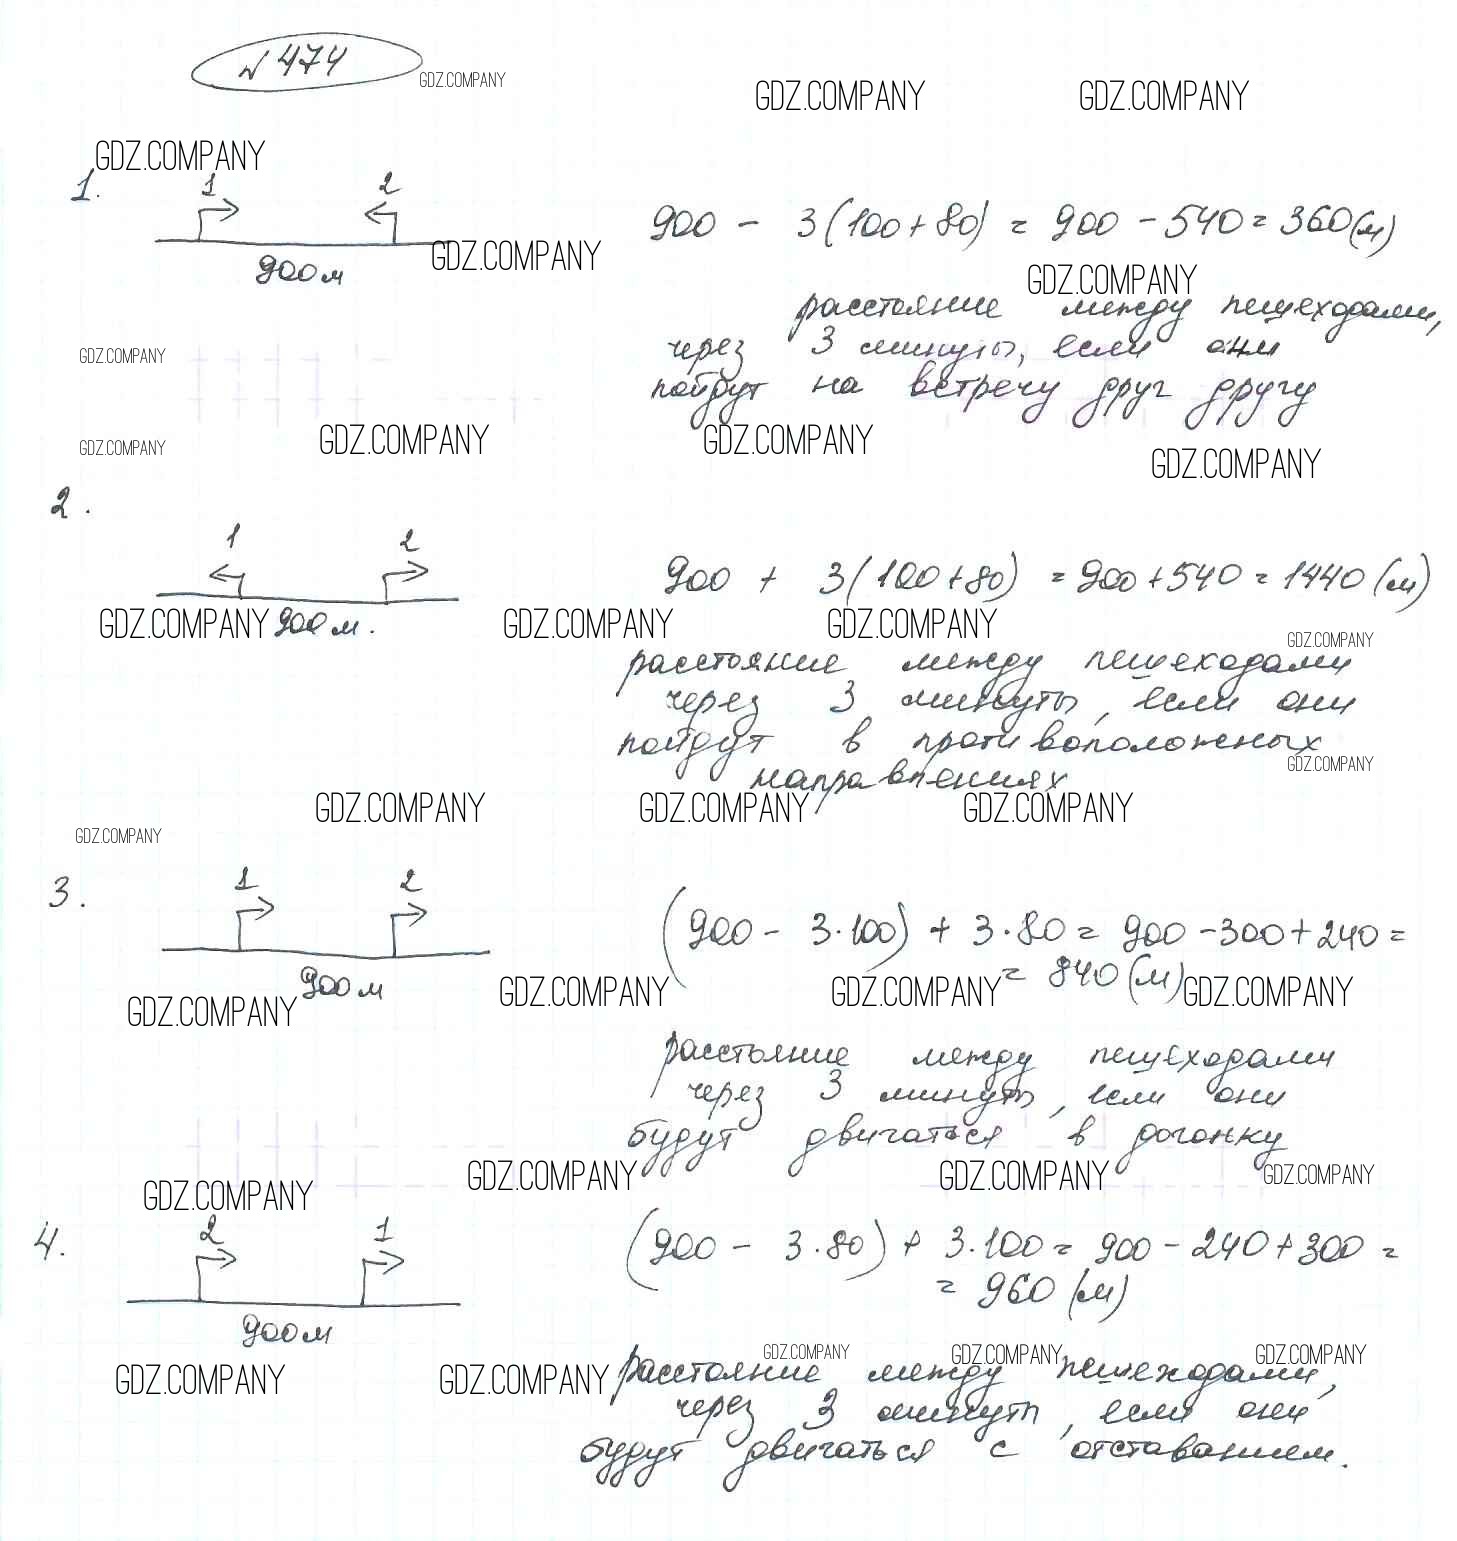 № 474
GDZ.COMPANY
GDZ.COMPANY GDZ.COMPANY
GDZ.COMPANY
1.
1 2
900 - 3(100+80) = 900 - 540 = 360(м)
900 м
GDZ.COMPANY
GDZ.COMPANY
расстояние между пешеходами,
GDZ.COMPANY
через 3 минуты, если они
пойдут на встречу друг другу
GDZ.COMPANY GDZ.COMPANY GDZ.COMPANY
GDZ.COMPANY
2.
1 2
900 + 3(100+80) = 900+540 = 1440 (м)
GDZ.COMPANY 900 м. GDZ.COMPANY GDZ.COMPANY
GDZ.COMPANY
расстояние между пешеходами
через 3 минуты, если они
пойдут в противоположных
GDZ.COMPANY
направлениях
GDZ.COMPANY GDZ.COMPANY GDZ.COMPANY
GDZ.COMPANY
3.
1 2
(900 - 3·100) + 3·80 = 900 - 300 + 240 =
= 840 (м)
900 м
GDZ.COMPANY GDZ.COMPANY GDZ.COMPANY
GDZ.COMPANY
расстояние между пешеходами
через 3 минуты, если они
будут двигаться в догонку
GDZ.COMPANY GDZ.COMPANY GDZ.COMPANY
GDZ.COMPANY
4.
2 1
(900 - 3·80) + 3·100 = 900 - 240 + 300 =
= 960 (м)
900 м
GDZ.COMPANY GDZ.COMPANY GDZ.COMPANY
GDZ.COMPANY GDZ.COMPANY
расстояние между пешеходами,
через 3 минуты, если они
будут двигаться с отставанием.